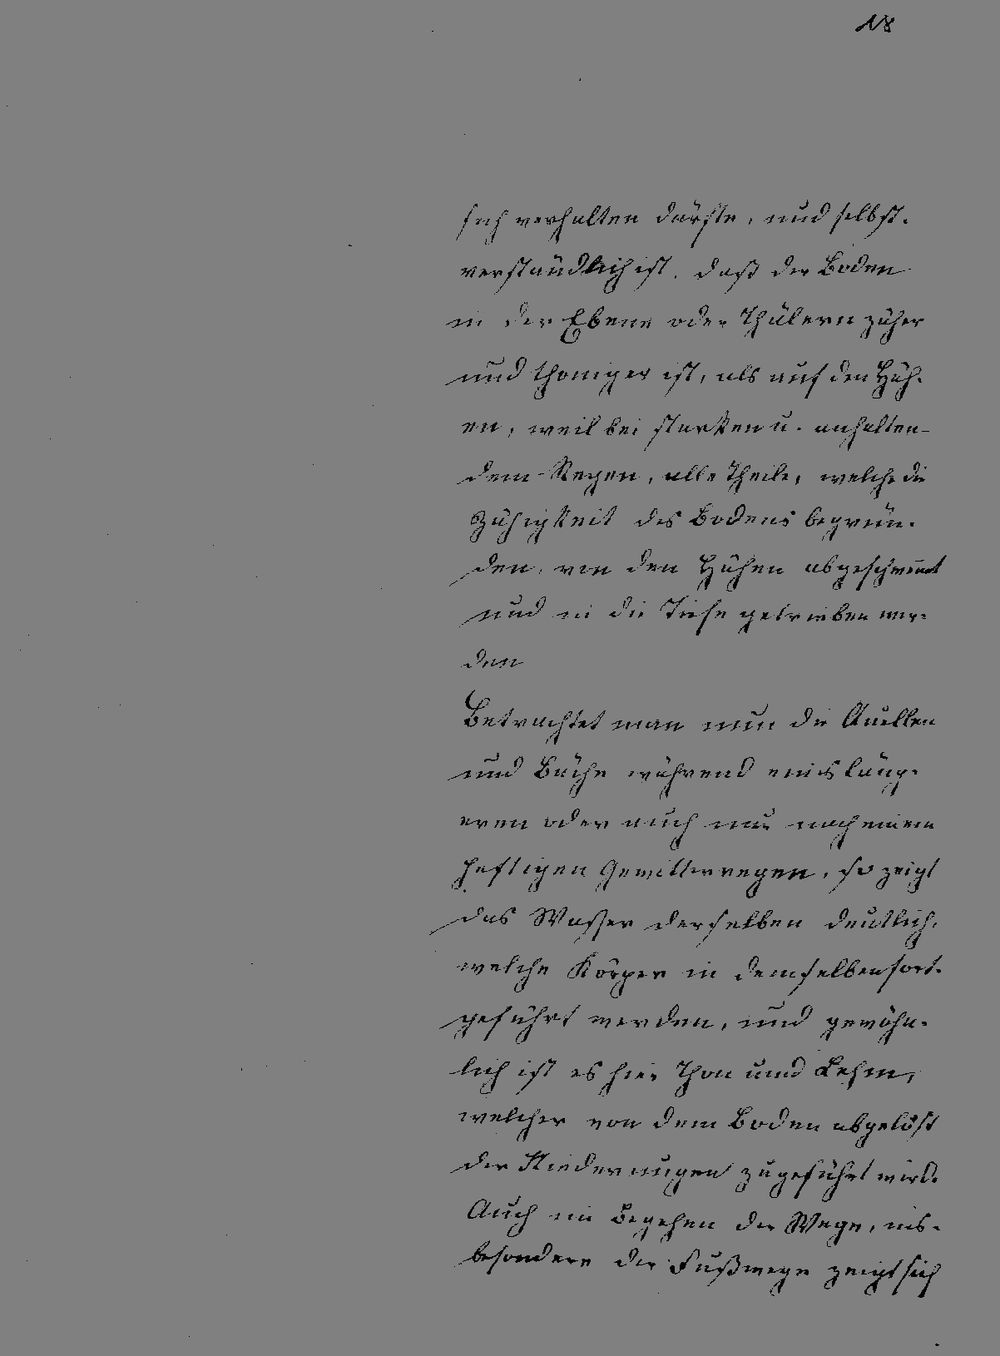 18
sich verhalten dürfte, und selbst-
verständlich ist, daß der Boden
in der Ebene oder Thälern zäher
und thoniger ist, als auf den Höh-
en, weil bei starken u. anhalten-
dem Regen, alle Theile, welche die
Zähigkeit des Bodens begrün-
den, von den Höhen abgeschwemt
und in die Tiefe getrieben wer-
den
Betrachtet man nun die Quellen
und Bäche während eines läng-
eren oder auch nur nach einem
heftigen Gewitterregen, so zeigt
das Wasser derselben deutlich,
welche Körper in demselben fort-
geführt werden, und gewöhn-
lich ist es hier Thon und Lehm,
welcher von dem Boden abgelöst
der Niederungen zugeführt wird.
Auch im Begehen der Wege, ins-
besondere der Fußwege zeigt sich